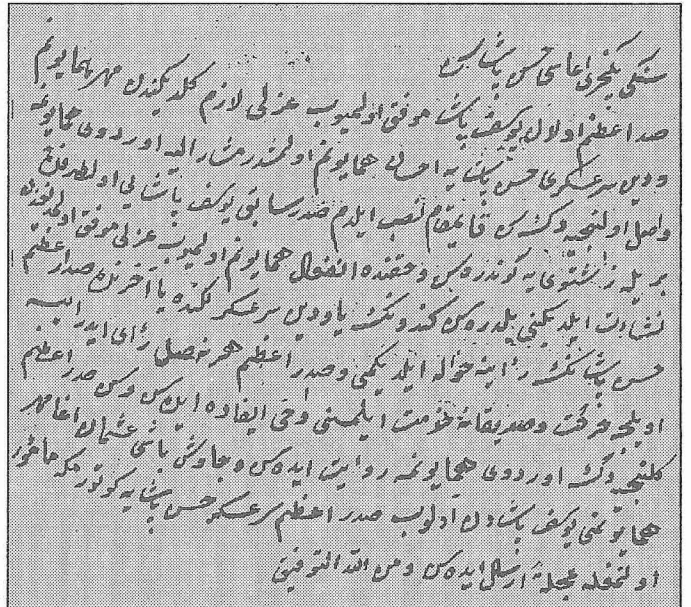 سنكه يكيچرى اغاسى حسن پاشاسن
صدر اعظم اولان يوسف پاشا موفق اولميوب عزلى لازم كلديكندن مهر همايونم
ودين سرعسكرى حسن پاشايه احسان همايونم اولمشدر مشار اليه اوردوى همايونه
واصل اولنجيه دكين سن قائمقام نصب ايلدم صدر سابق يوسف پاشايى اوطلر
بريله زشتوى يه كوندره سن وحقنده انفعال همايونم اولميوب عزلى موفق اولمديغندن
نشات ايلديكنى بلدره سن كندونك يا ودين سرعسكرلكنده يا آخرنده صدر اعظم
حسن پاشانك رأينه حواله ايلديكمى وصدر اعظم هر نه اصل رأى ايدر ايسه
اويلجه حركت وصديقانه خدمت ايلمسنى دخى افاده ايده سن وسن صدر اعظم
كلنجيه دك اوردوى همايونمه روايت ايده سن وچاوش باشى عثمان اغا مهر
همايونمى يوسف پاشادن الوب صدر اعظم سرعسكر حسن پاشايه كوتورمكه مأمور
اولمغله عجلةً ارسال ايده سن ومن الله التوفيق